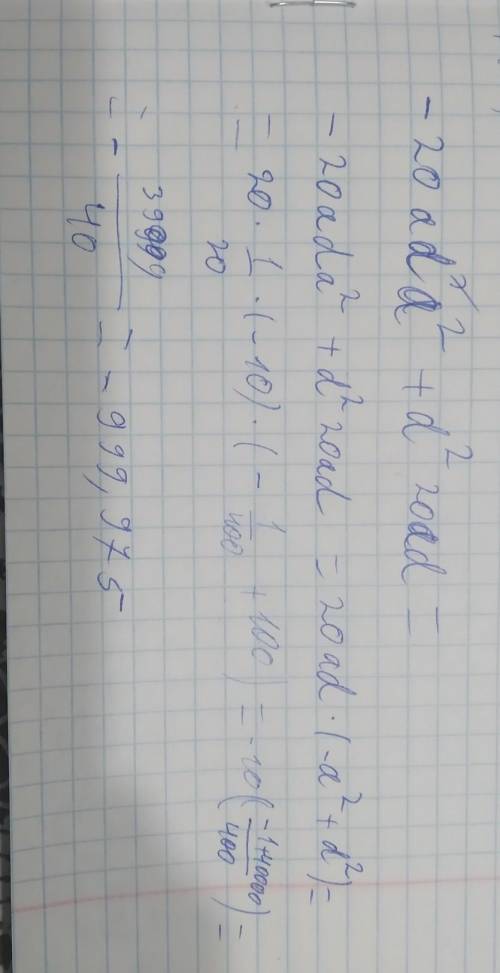 - 20ada² + d²20ad =
- 20ada² + d²20ad = 20ad · (-a² + d²) =
= 20 · 1/20 · (-10) · (- 1/400 + 100) = -10 (-1+40000/400) =
= - 39999/40 = - 999,975